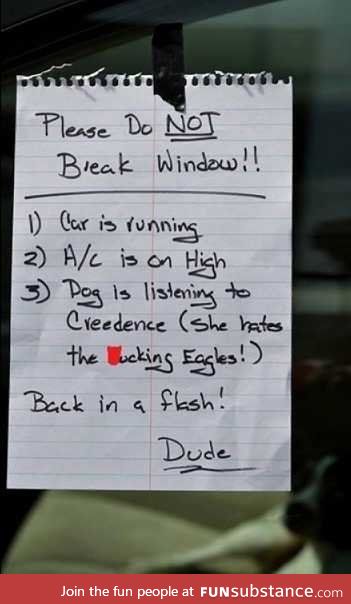 Please Do NOT
Break Window!!
1) Car is running
2) A/C is on High
3) Dog is listening to
Creedence (She hates
the ucking Eagles!)
Back in a flash!
Dude
Join the fun people at FUNsubstance.com